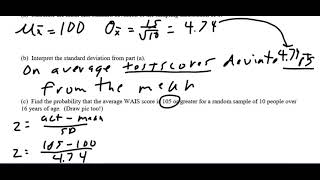 μx̄ = 100 σx̄ = 15/√10 = 4.74
(b) Interpret the standard deviation from part (a).
On average test scores deviate 4.74 pts
from the mean
(c) Find the probability that the average WAIS score is 105 or greater for a random sample of 10 people over
16 years of age. (Draw pic too!)
z = act - mean / SD
z = 105 - 100 / 4.74